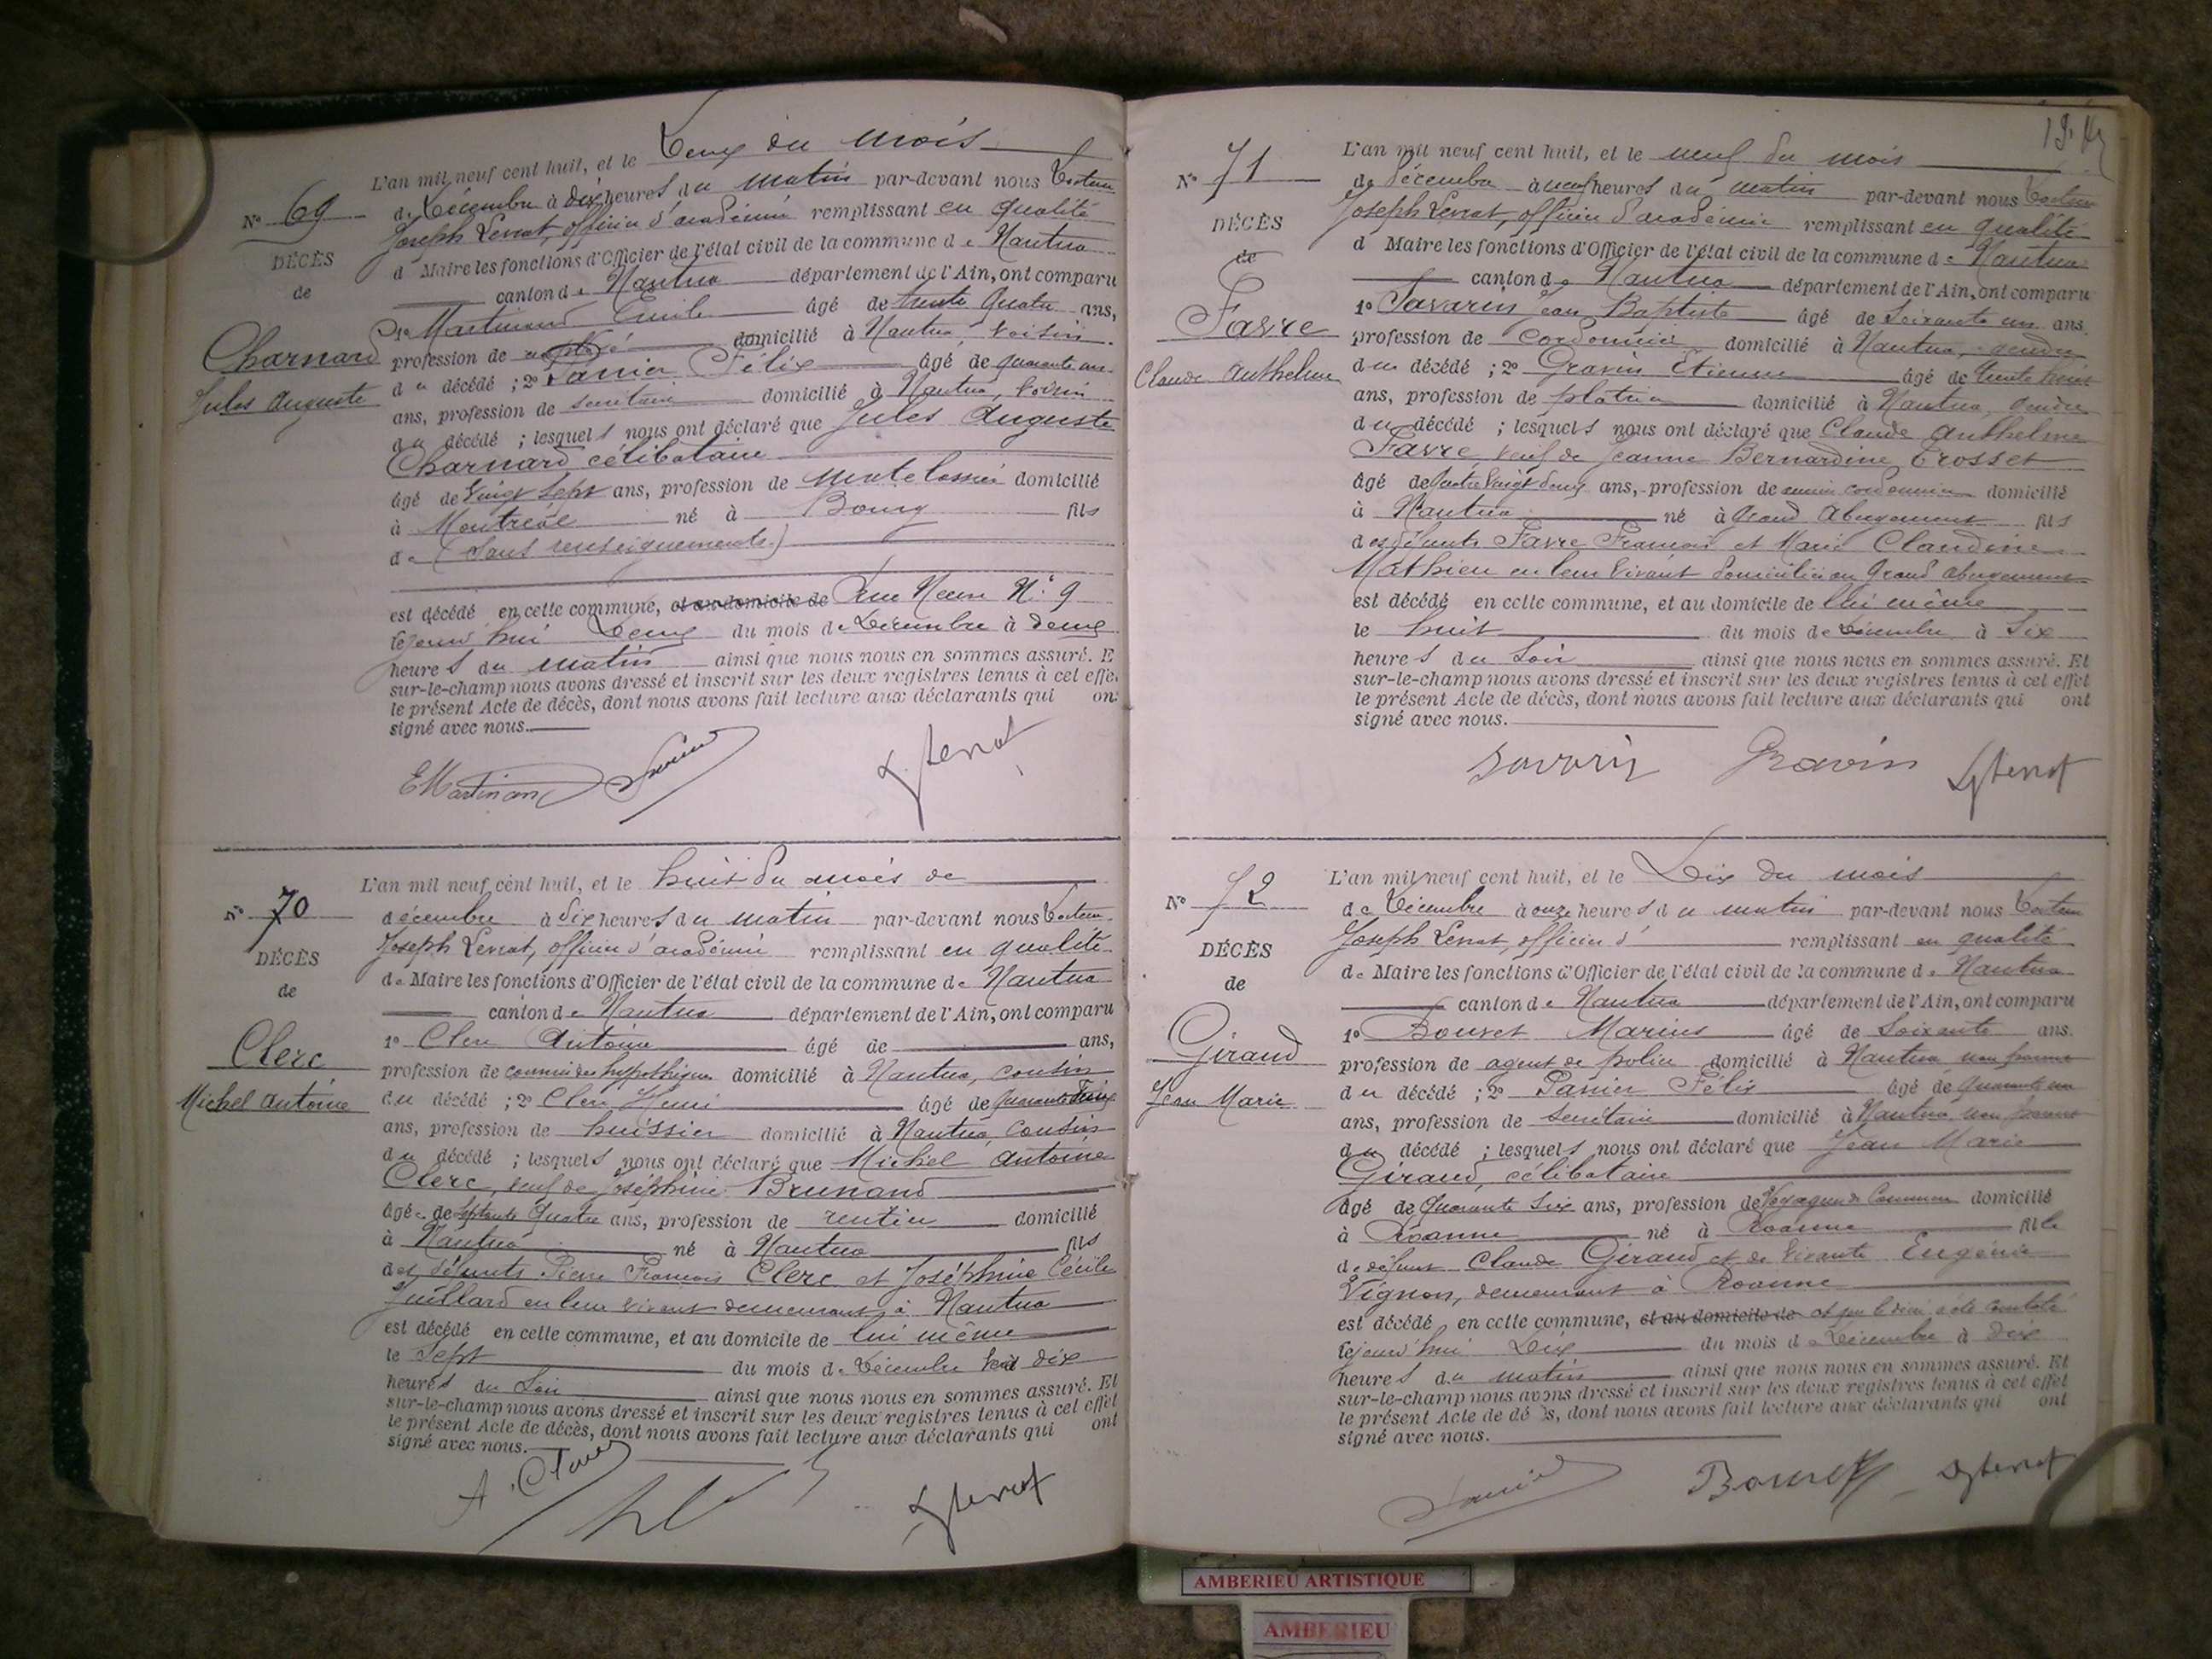 L'an mil neuf cent huit, et le Deux du mois
N° 69
de Décembre à dix heures du matin par-devant nous Docteur
Joseph Levrat, officier d'académie remplissant en qualité
DÉCÈS
de
d Maire les fonctions d'Officier de l'état civil de la commune de Nantua
canton de Nantua département de l'Ain, ont comparu
1° Martinand Emile âgé de trente quatre ans,
Charnard
Jules Auguste
profession de employé domicilié à Nantua, voisin
du décédé ; 2° Panier Félix âgé de quarante un
ans, profession de secrétaire domicilié à Nantua, voisin
du décédé ; lesquels nous ont déclaré que Jules Auguste
Charnard célibataire
âgé de vingt sept ans, profession de matelassier domicilié
à Montréal né à Bourg fils
de (Sans renseignements)
est décédé en cette commune, et au domicile de Rue Neuve N° 9
le jourd'hui Deux du mois de Décembre à deux
heures du matin ainsi que nous nous en sommes assuré. E
sur-le-champ nous avons dressé et inscrit sur les deux registres tenus à cet effe
le présent Acte de décès, dont nous avons fait lecture aux déclarants qui on
signé avec nous.
EMartinand
L'an mil neuf cent huit, et le huit du mois de
N° 70
décembre à dix heures du matin par-devant nous Docteur
Joseph Levrat, officier d'académie remplissant en qualité
DÉCÈS
de
de Maire les fonctions d'Officier de l'état civil de la commune de Nantua
canton de Nantua département de l'Ain, ont comparu
1° Clerc Antoine âgé de ans,
Clerc
Michel Antoine
profession de commis des hypothèques domicilié à Nantua, cousin
du décédé ; 2° Clerc Henri âgé de quarante
ans, profession de huissier domicilié à Nantua, cousin
du décédé ; lesquels nous ont déclaré que Michel Antoine
Clerc, veuf de Joséphine Brunand
âgé de septante quatre ans, profession de rentier domicilié
à Nantua né à Nantua fils
des défunts Pierre François Clerc et Joséphine Cécile
Juillard en leur vivant demeurant à Nantua
est décédé en cette commune, et au domicile de lui même
le Sept du mois de Décembre à dix
heures du Soir ainsi que nous nous en sommes assuré. Et
sur-le-champ nous avons dressé et inscrit sur les deux registres tenus à cet effet
le présent Acte de décès, dont nous avons fait lecture aux déclarants qui ont
signé avec nous.
A. Clerc
L'an mil neuf cent huit, et le neuf du mois
N° 71
de décembre à neuf heures du matin par-devant nous Docteur
Joseph Levrat, officier d'académie remplissant en qualité
DÉCÈS
de
d Maire les fonctions d'Officier de l'état civil de la commune de Nantua
canton de Nantua département de l'Ain, ont comparu
1° Savarin Jean Baptiste âgé de Soixante un ans.
Favre
Claude Anthelme
profession de Cordonnier domicilié à Nantua, gendre
du décédé ; 2° Gravin Étienne âgé de trente huit
ans, profession de platrier domicilié à Nantua, gendre
du décédé ; lesquels nous ont déclaré que Claude Anthelme
Favre veuf de Jeanne Bernardine Crosset
âgé de quatre vingt deux ans, profession de ancien cordonnier domicilié
à Nantua né à Grand Abergement fils
des défunts Favre François et Marie Claudine
Mathieu en leur vivant domiciliés au Grand abergement
est décédé en cette commune, et au domicile de lui même
le huit du mois de Décembre à Six
heures du Soir ainsi que nous nous en sommes assuré. Et
sur-le-champ nous avons dressé et inscrit sur les deux registres tenus à cet effet
le présent Acte de décès, dont nous avons fait lecture aux déclarants qui ont
signé avec nous.
Savarin Gravin
L'an mil neuf cent huit, et le Dix du mois
N° 72
de Décembre à onze heures du matin par-devant nous Docteur
Joseph Levrat, officier d' remplissant en qualité
DÉCÈS
de
de Maire les fonctions d'Officier de l'état civil de la commune de Nantua
canton de Nantua département de l'Ain, ont comparu
1° Bouvet Marius âgé de Soixante ans.
Giraud
Jean Marie
profession de agent de police domicilié à Nantua non parent
du décédé ; 2° Panier Félix âgé de quarante un
ans, profession de Secrétaire domicilié à Nantua non parent
du décédé ; lesquels nous ont déclaré que Jean Marie
Giraud, célibataire
âgé de quarante six ans, profession de Voyageur de Commerce domicilié
à Roanne né à Roanne fils
de défunt Claude Giraud et de vivante Eugénie
Vignon, demeurant à Roanne
est décédé en cette commune, et au domicile de
le jourd'hui Dix du mois de Décembre à dix
heures du matin ainsi que nous nous en sommes assuré. Et
sur-le-champ nous avons dressé et inscrit sur les deux registres tenus à cet effet
le présent Acte de dé s, dont nous avons fait lecture aux déclarants qui ont
signé avec nous.
Bouvet
AMBERIEU ARTISTIQUE
AMBERIEU